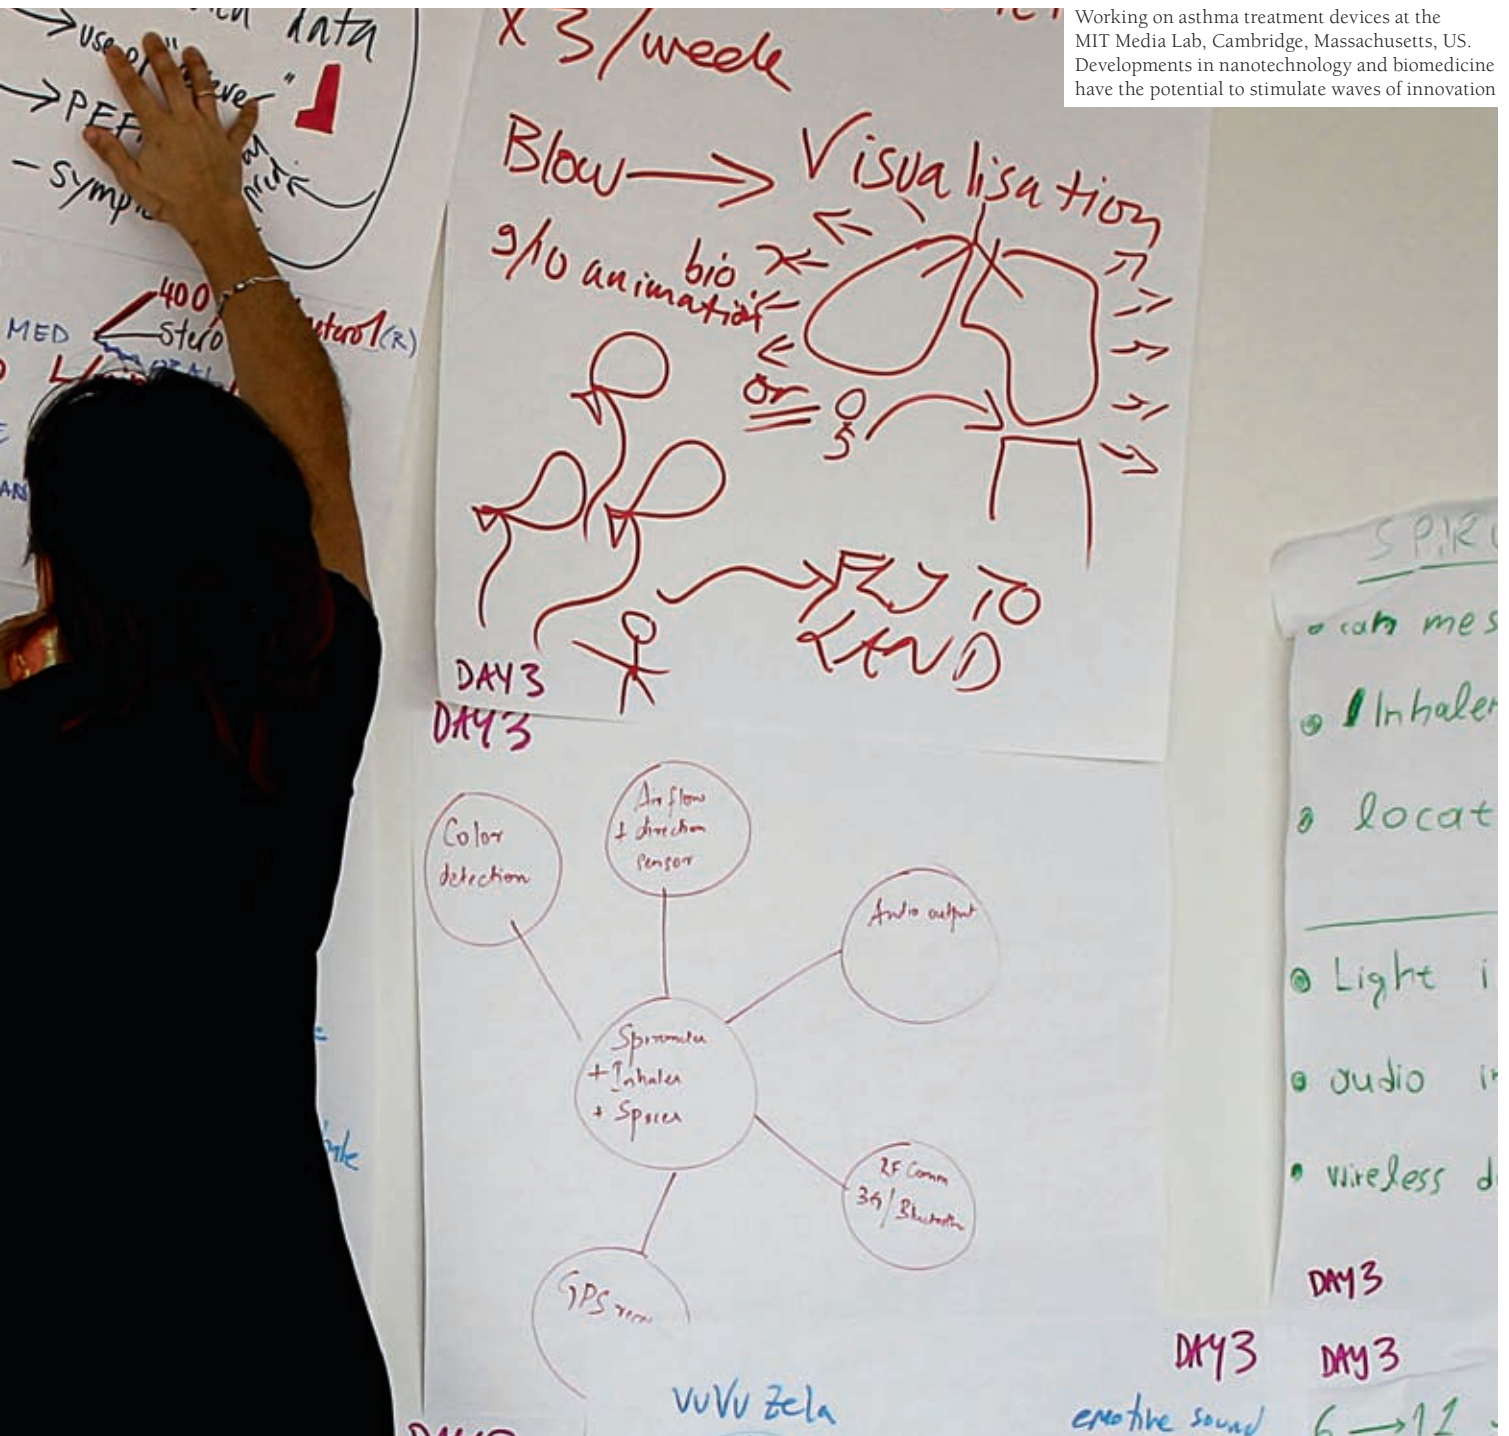 Working on asthma treatment devices at the
MIT Media Lab, Cambridge, Massachusetts, US.
Developments in nanotechnology and biomedicine
have the potential to stimulate waves of innovation
data
use of "
PEF
- Symp
MED
400
Stero
(R)
x 3/week
Blow → Visualisation
bio
animation
or
FLY TO
LAND
DAY 3
DAY 3
Color
detection
Airflow
+ direction
sensor
Audio output
Spirometer
+ Inhaler
+ Spacer
RF Comm
3G/Bluetooth
GPS
VuVu Zela
SPIR
can mes
Inhaler
locat
Light i
audio in
wireless d
DAY 3
DAY 3
DAY 3
emotive sound
6 → 12